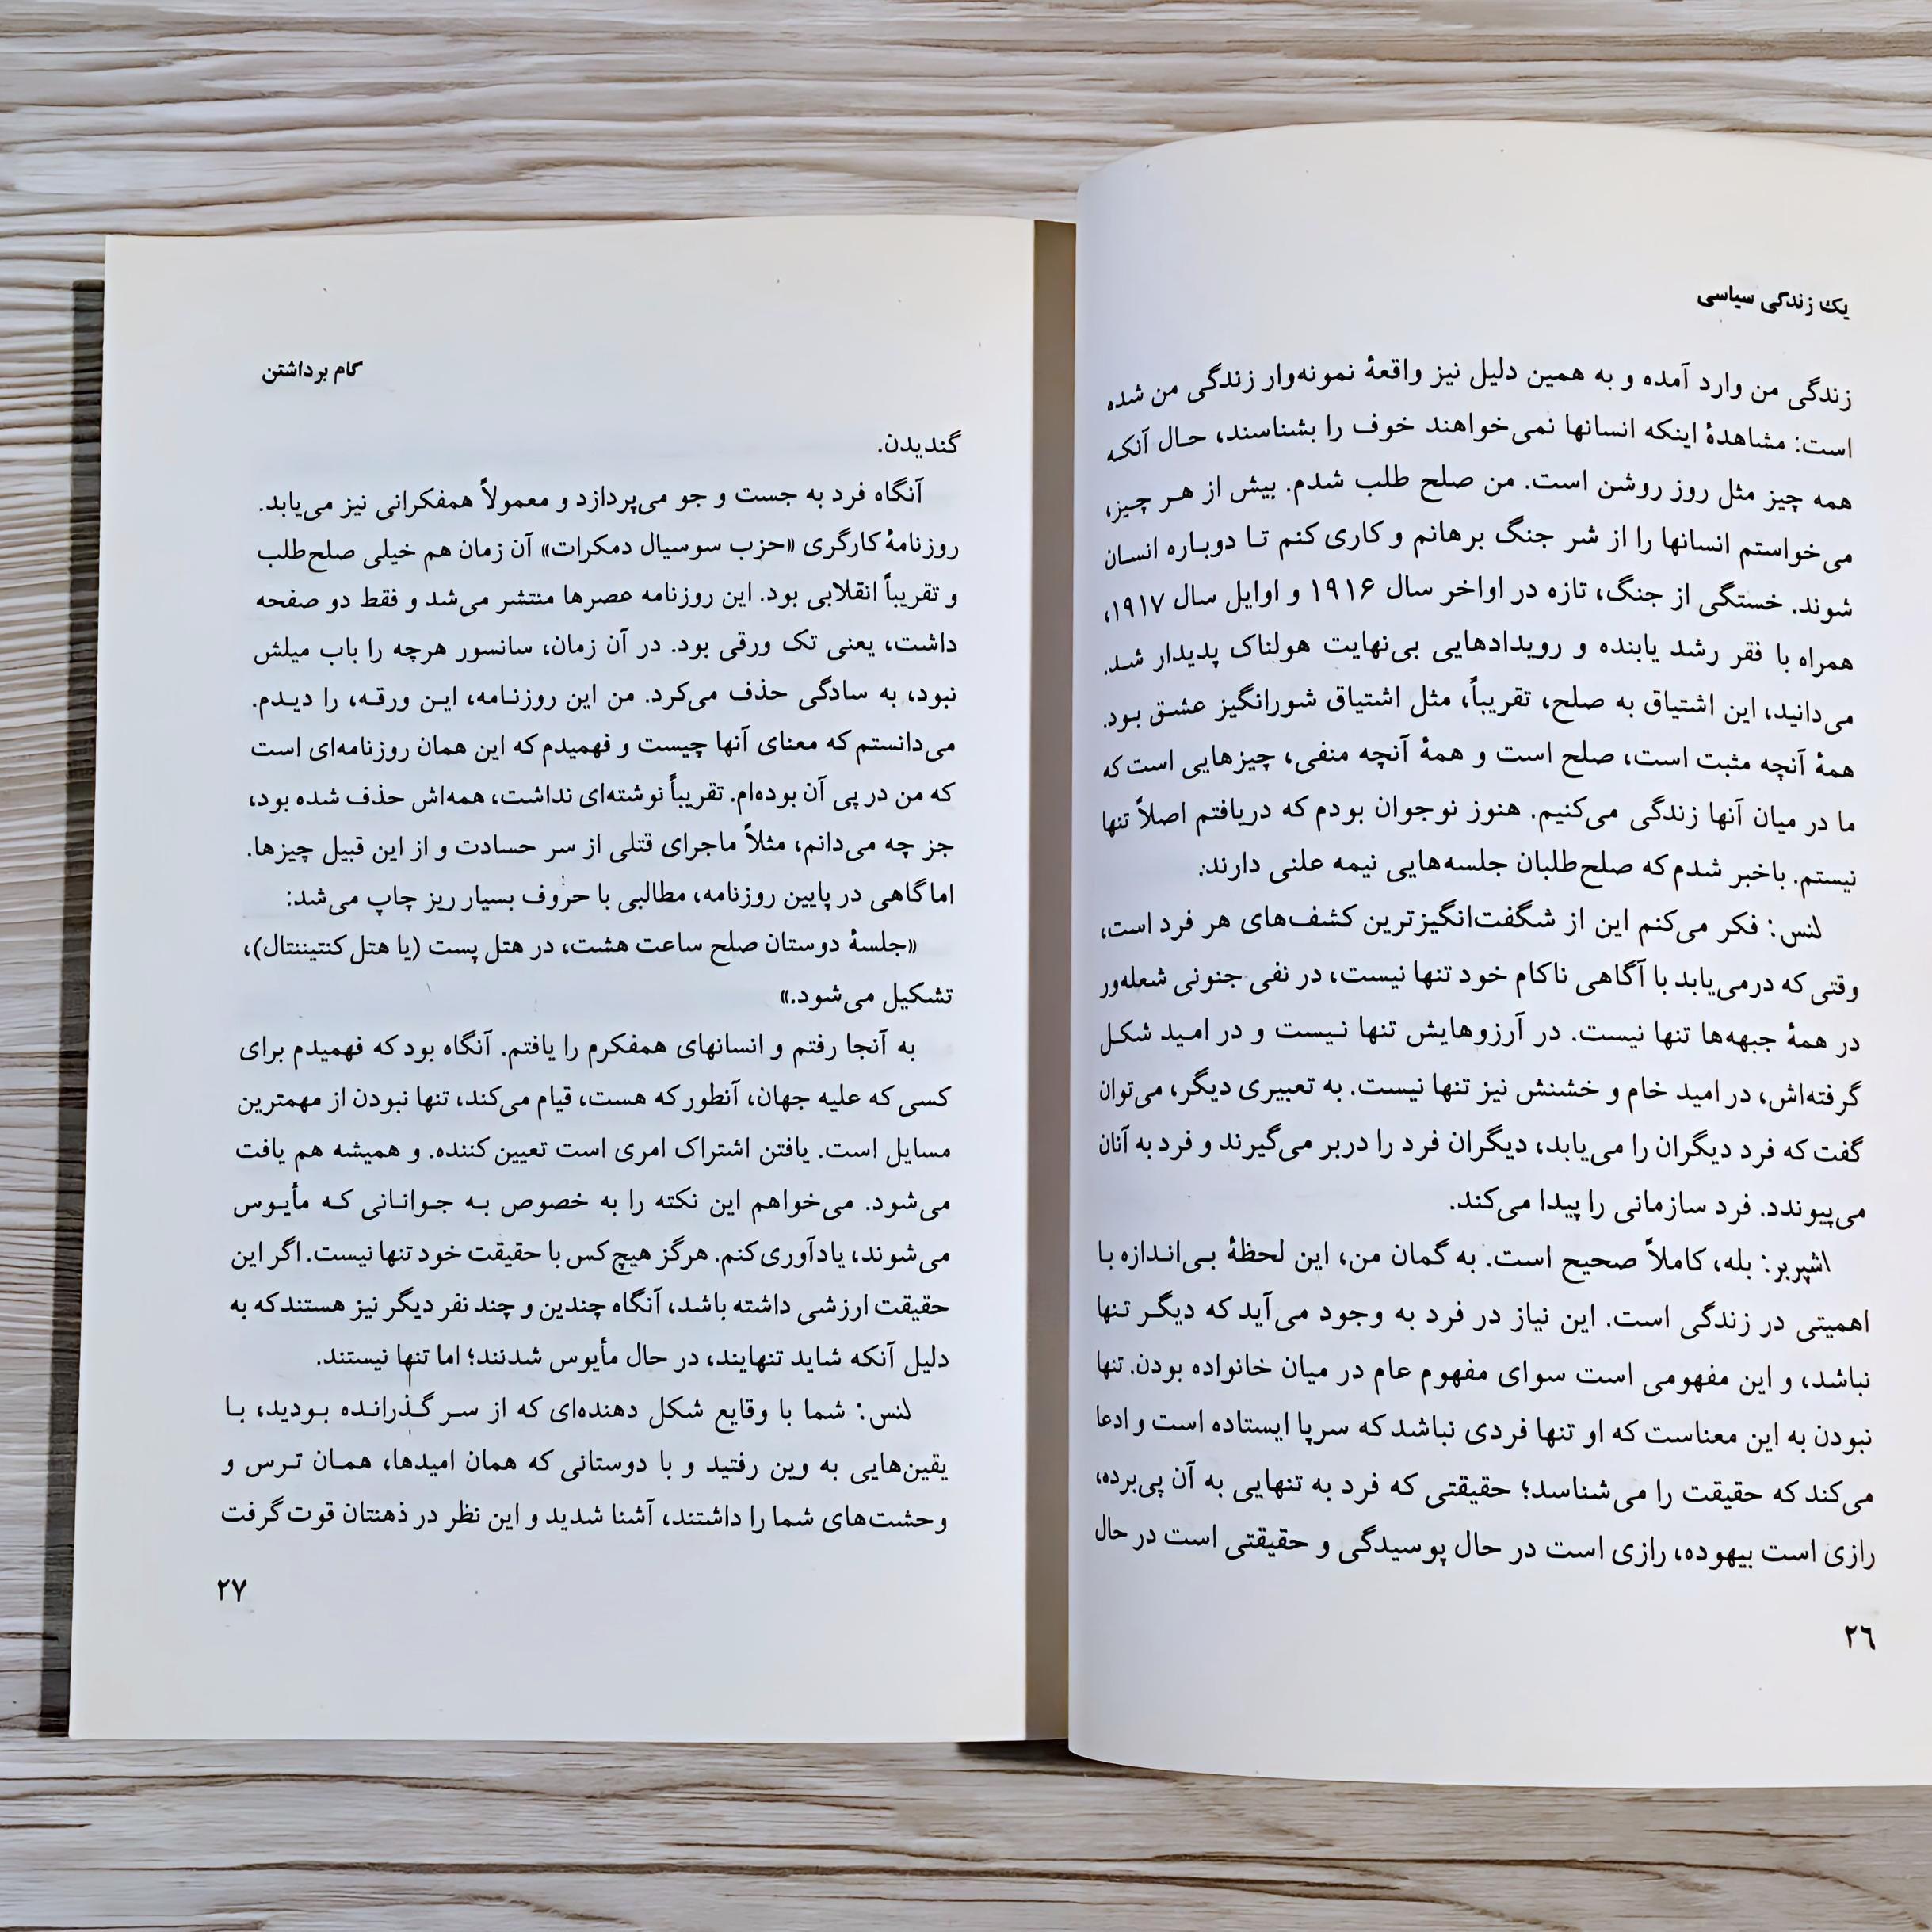 یک زندگی سیاسی
زندگی من وارد آمده و به همین دلیل نیز واقعهٔ نمونه‌وار زندگی من شده
است: مشاهدهٔ اینکه انسانها نمی‌خواهند خوف را بشناسند، حال آنکه
همه چیز مثل روز روشن است. من صلح طلب شدم. بیش از هر چیز،
می‌خواستم انسانها را از شر جنگ برهانم و کاری کنم تا دوباره انسان
شوند. خستگی از جنگ، تازه در اواخر سال ۱۹۱۶ و اوایل سال ۱۹۱۷،
همراه با فقر رشد یابنده و رویدادهایی بی‌نهایت هولناک پدیدار شد.
می‌دانید، این اشتیاق به صلح، تقریباً، مثل اشتیاق شورانگیز عشق بود.
همهٔ آنچه مثبت است، صلح است و همهٔ آنچه منفی، چیزهایی است که
ما در میان آنها زندگی می‌کنیم. هنوز نوجوان بودم که دریافتم اصلاً تنها
نیستم. باخبر شدم که صلح‌طلبان جلسه‌هایی نیمه علنی دارند.
لنس: فکر می‌کنم این از شگفت‌انگیزترین کشف‌های هر فرد است،
وقتی که درمی‌یابد با آگاهی ناکام خود تنها نیست، در نفی جنونی شعله‌ور
در همهٔ جبهه‌ها تنها نیست. در آرزوهایش تنها نیست و در امید شکل
گرفته‌اش، در امید خام و خشنش نیز تنها نیست. به تعبیری دیگر، می‌توان
گفت که فرد دیگران را می‌یابد، دیگران فرد را دربر می‌گیرند و فرد به آنان
می‌پیوندد. فرد سازمانی را پیدا می‌کند.
اشپربر: بله، کاملاً صحیح است. به گمان من، این لحظهٔ بی‌اندازه با
اهمیتی در زندگی است. این نیاز در فرد به وجود می‌آید که دیگر تنها
نباشد، و این مفهومی است سوای مفهوم عام در میان خانواده بودن. تنها
نبودن به این معناست که او تنها فردی نباشد که سرپا ایستاده است و ادعا
می‌کند که حقیقت را می‌شناسد؛ حقیقتی که فرد به تنهایی به آن پی‌برده،
رازی است بیهوده، رازی است در حال پوسیدگی و حقیقتی است در حال
۲۶
گام برداشتن
گندیدن.
آنگاه فرد به جست و جو می‌پردازد و معمولاً همفکرانی نیز می‌یابد.
روزنامهٔ کارگری «حزب سوسیال دمکرات» آن زمان هم خیلی صلح‌طلب
و تقریباً انقلابی بود. این روزنامه عصرها منتشر می‌شد و فقط دو صفحه
داشت، یعنی تک ورقی بود. در آن زمان، سانسور هرچه را باب میلش
نبود، به سادگی حذف می‌کرد. من این روزنامه، این ورقه، را دیدم.
می‌دانستم که معنای آنها چیست و فهمیدم که این همان روزنامه‌ای است
که من در پی آن بوده‌ام. تقریباً نوشته‌ای نداشت، همه‌اش حذف شده بود،
جز چه می‌دانم، مثلاً ماجرای قتلی از سر حسادت و از این قبیل چیزها.
اما گاهی در پایین روزنامه، مطالبی با حروف بسیار ریز چاپ می‌شد:
«جلسهٔ دوستان صلح ساعت هشت، در هتل پست (یا هتل کنتیننتال)،
تشکیل می‌شود.»
به آنجا رفتم و انسانهای همفکرم را یافتم. آنگاه بود که فهمیدم برای
کسی که علیه جهان، آنطور که هست، قیام می‌کند، تنها نبودن از مهمترین
مسایل است. یافتن اشتراک امری است تعیین کننده. و همیشه هم یافت
می‌شود. می‌خواهم این نکته را به خصوص به جوانانی که مأیوس
می‌شوند، یادآوری کنم. هرگز هیچ‌کس با حقیقت خود تنها نیست. اگر این
حقیقت ارزشی داشته باشد، آنگاه چندین و چند نفر دیگر نیز هستند که به
دلیل آنکه شاید تنهایند، در حال مأیوس شدنند؛ اما تنها نیستند.
لنس: شما با وقایع شکل دهنده‌ای که از سر گذرانده بودید، با
یقین‌هایی به وین رفتید و با دوستانی که همان امیدها، همان ترس و
وحشت‌های شما را داشتند، آشنا شدید و این نظر در ذهنتان قوت گرفت
۲۷